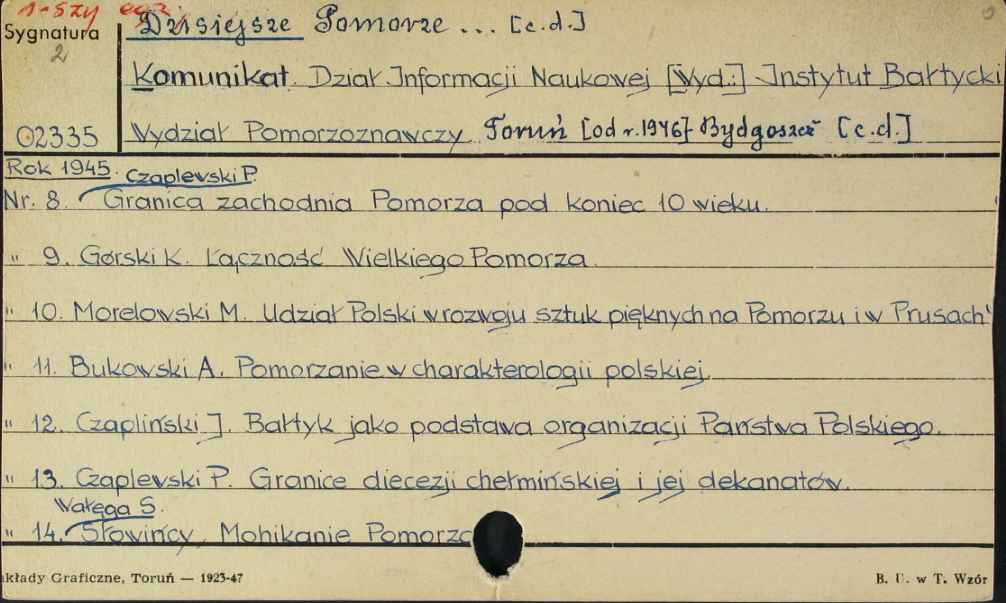 1-szy egz.
Sygnatura
2
02335
Dzisiejsze Pomorze ... [c.d.]
Komunikat. Dział Informacji Naukowej [Wyd.:] Instytut Bałtycki
Wydział Pomorzoznawczy. Toruń [od r. 1946] Bydgoszcz [c.d.]
Rok 1945. Czaplewski P.
Nr. 8. Granica zachodnia Pomorza pod koniec 10 wieku.
" 9. Górski K. Łączność Wielkiego Pomorza.
" 10. Morelowski M. Udział Polski w rozwoju sztuk pięknych na Pomorzu i w Prusach
" 11. Bukowski A. Pomorzanie w charakterologii polskiej.
" 12. Czapliński J. Bałtyk jako podstawa organizacji Państwa Polskiego.
" 13. Czaplewski P. Granice diecezji chełmińskiej i jej dekanatów.
Wałęga S.
" 14. Słowińcy, Mohikanie Pomorza
kłady Graficzne, Toruń — 1923-47
B. U. w T. Wzór